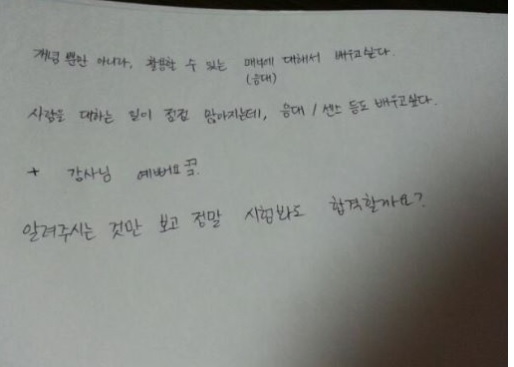 개념 뿐만 아니라, 활용할 수 있는 매너에 대해서 배우고싶다.
(응대)
사람을 대하는 일이 점점 많아지는데, 응대 / 센스 등도 배우고싶다.
+ 강사님 예뻐요 굿.
알려주시는 것만 보고 정말 시험봐도 합격할까요?